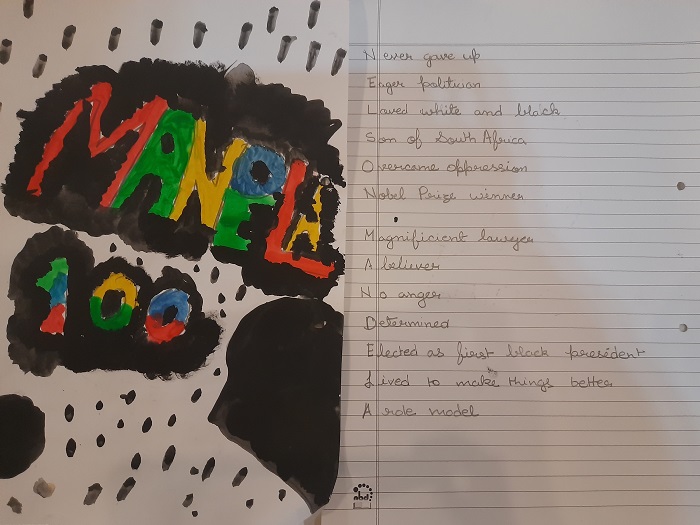 MANDELA
100
Never gave up
Eager politician
Loved white and black
Son of South Africa
Overcame oppression
Nobel Prize winner
Magnificient lawyer
A believer
No anger
Determined
Elected as first black president
Lived to make things better
A role model
abd